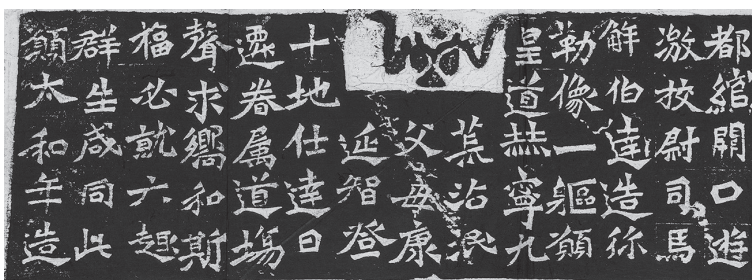 都綰闕口遊
激校尉司馬
解伯達造弥
勒像一軀願
皇道赫寧九
荒沾泯
父母康
延智登
十地仕達日
遷眷属道場
聲求嚮和斯
福必就六趣
群生咸同此
願太和年造